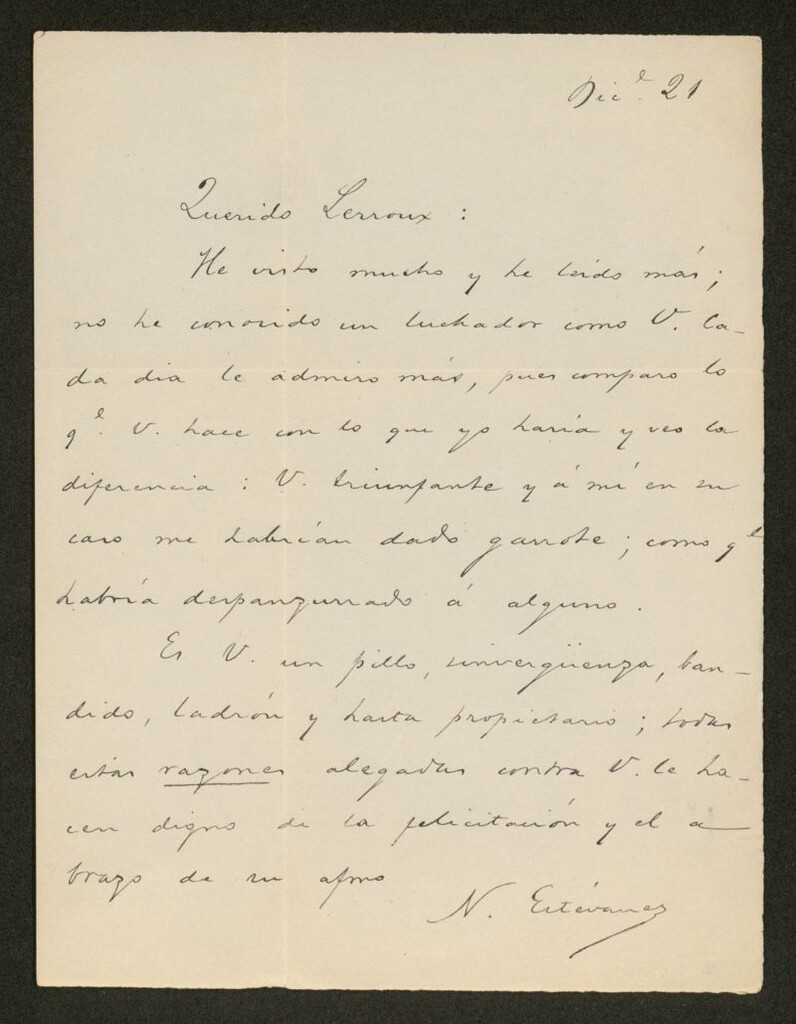 Dicᵉ. 21
Querido Lerroux :
He visto mucho y he leido más ;
no he conocido un luchador como V. Ca-
da dia le admiro más, pues comparo lo
qᵉ. V. hace con lo que yo haría y veo la
diferencia : V. triunfante y á mí en su
caso me habrían dado garrote ; como qᵉ
habría despanzurrado á alguno .
Es V. un pillo, sinvergüenza, ban-
dido, ladrón y hasta propietario ; todas
estas razones alegadas contra V. le ha-
cen digno de la felicitación y el a-
brazo de su afmo
N. Estévanez